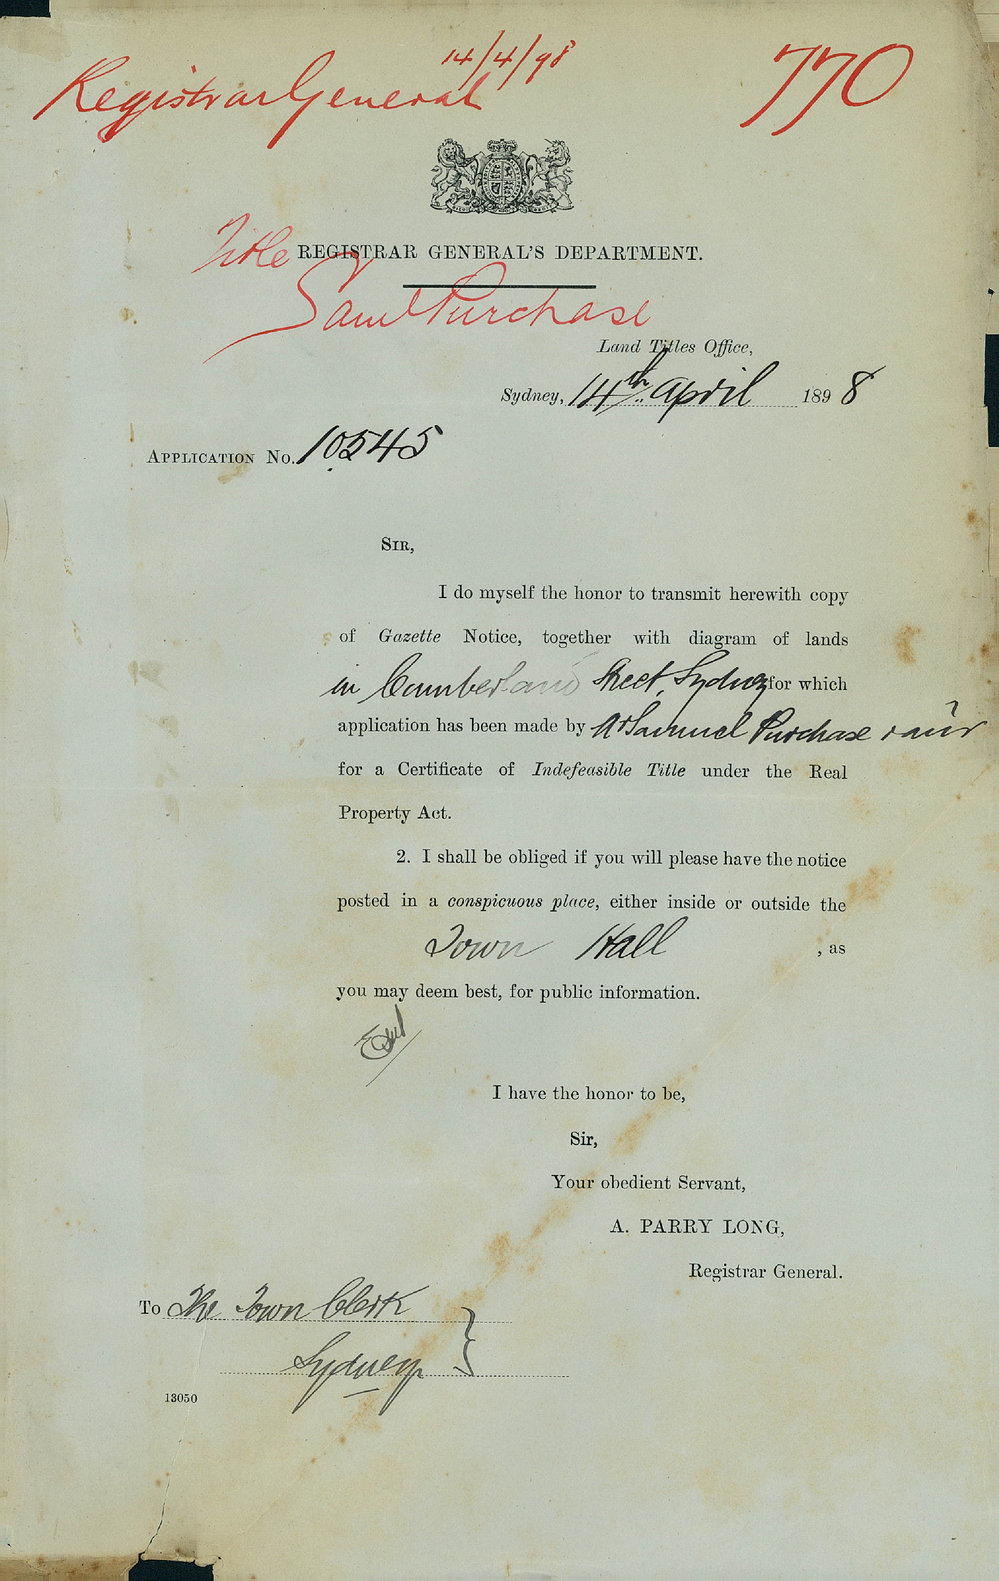 14/4/98
Registrar General
770
Title
REGISTRAR GENERAL'S DEPARTMENT.
Saml Purchase
Land Titles Office,
Sydney, 14th April 1898
APPLICATION No. 10545
SIR,
I do myself the honor to transmit herewith copy
of Gazette Notice, together with diagram of lands
in Cumberland Street, Sydney for which
application has been made by Samuel Purchase
for a Certificate of Indefeasible Title under the Real
Property Act.
2. I shall be obliged if you will please have the notice
posted in a conspicuous place, either inside or outside the
Town Hall , as
you may deem best, for public information.
I have the honor to be,
Sir,
Your obedient Servant,
A. PARRY LONG,
Registrar General.
To The Town Clerk
Sydney
13050